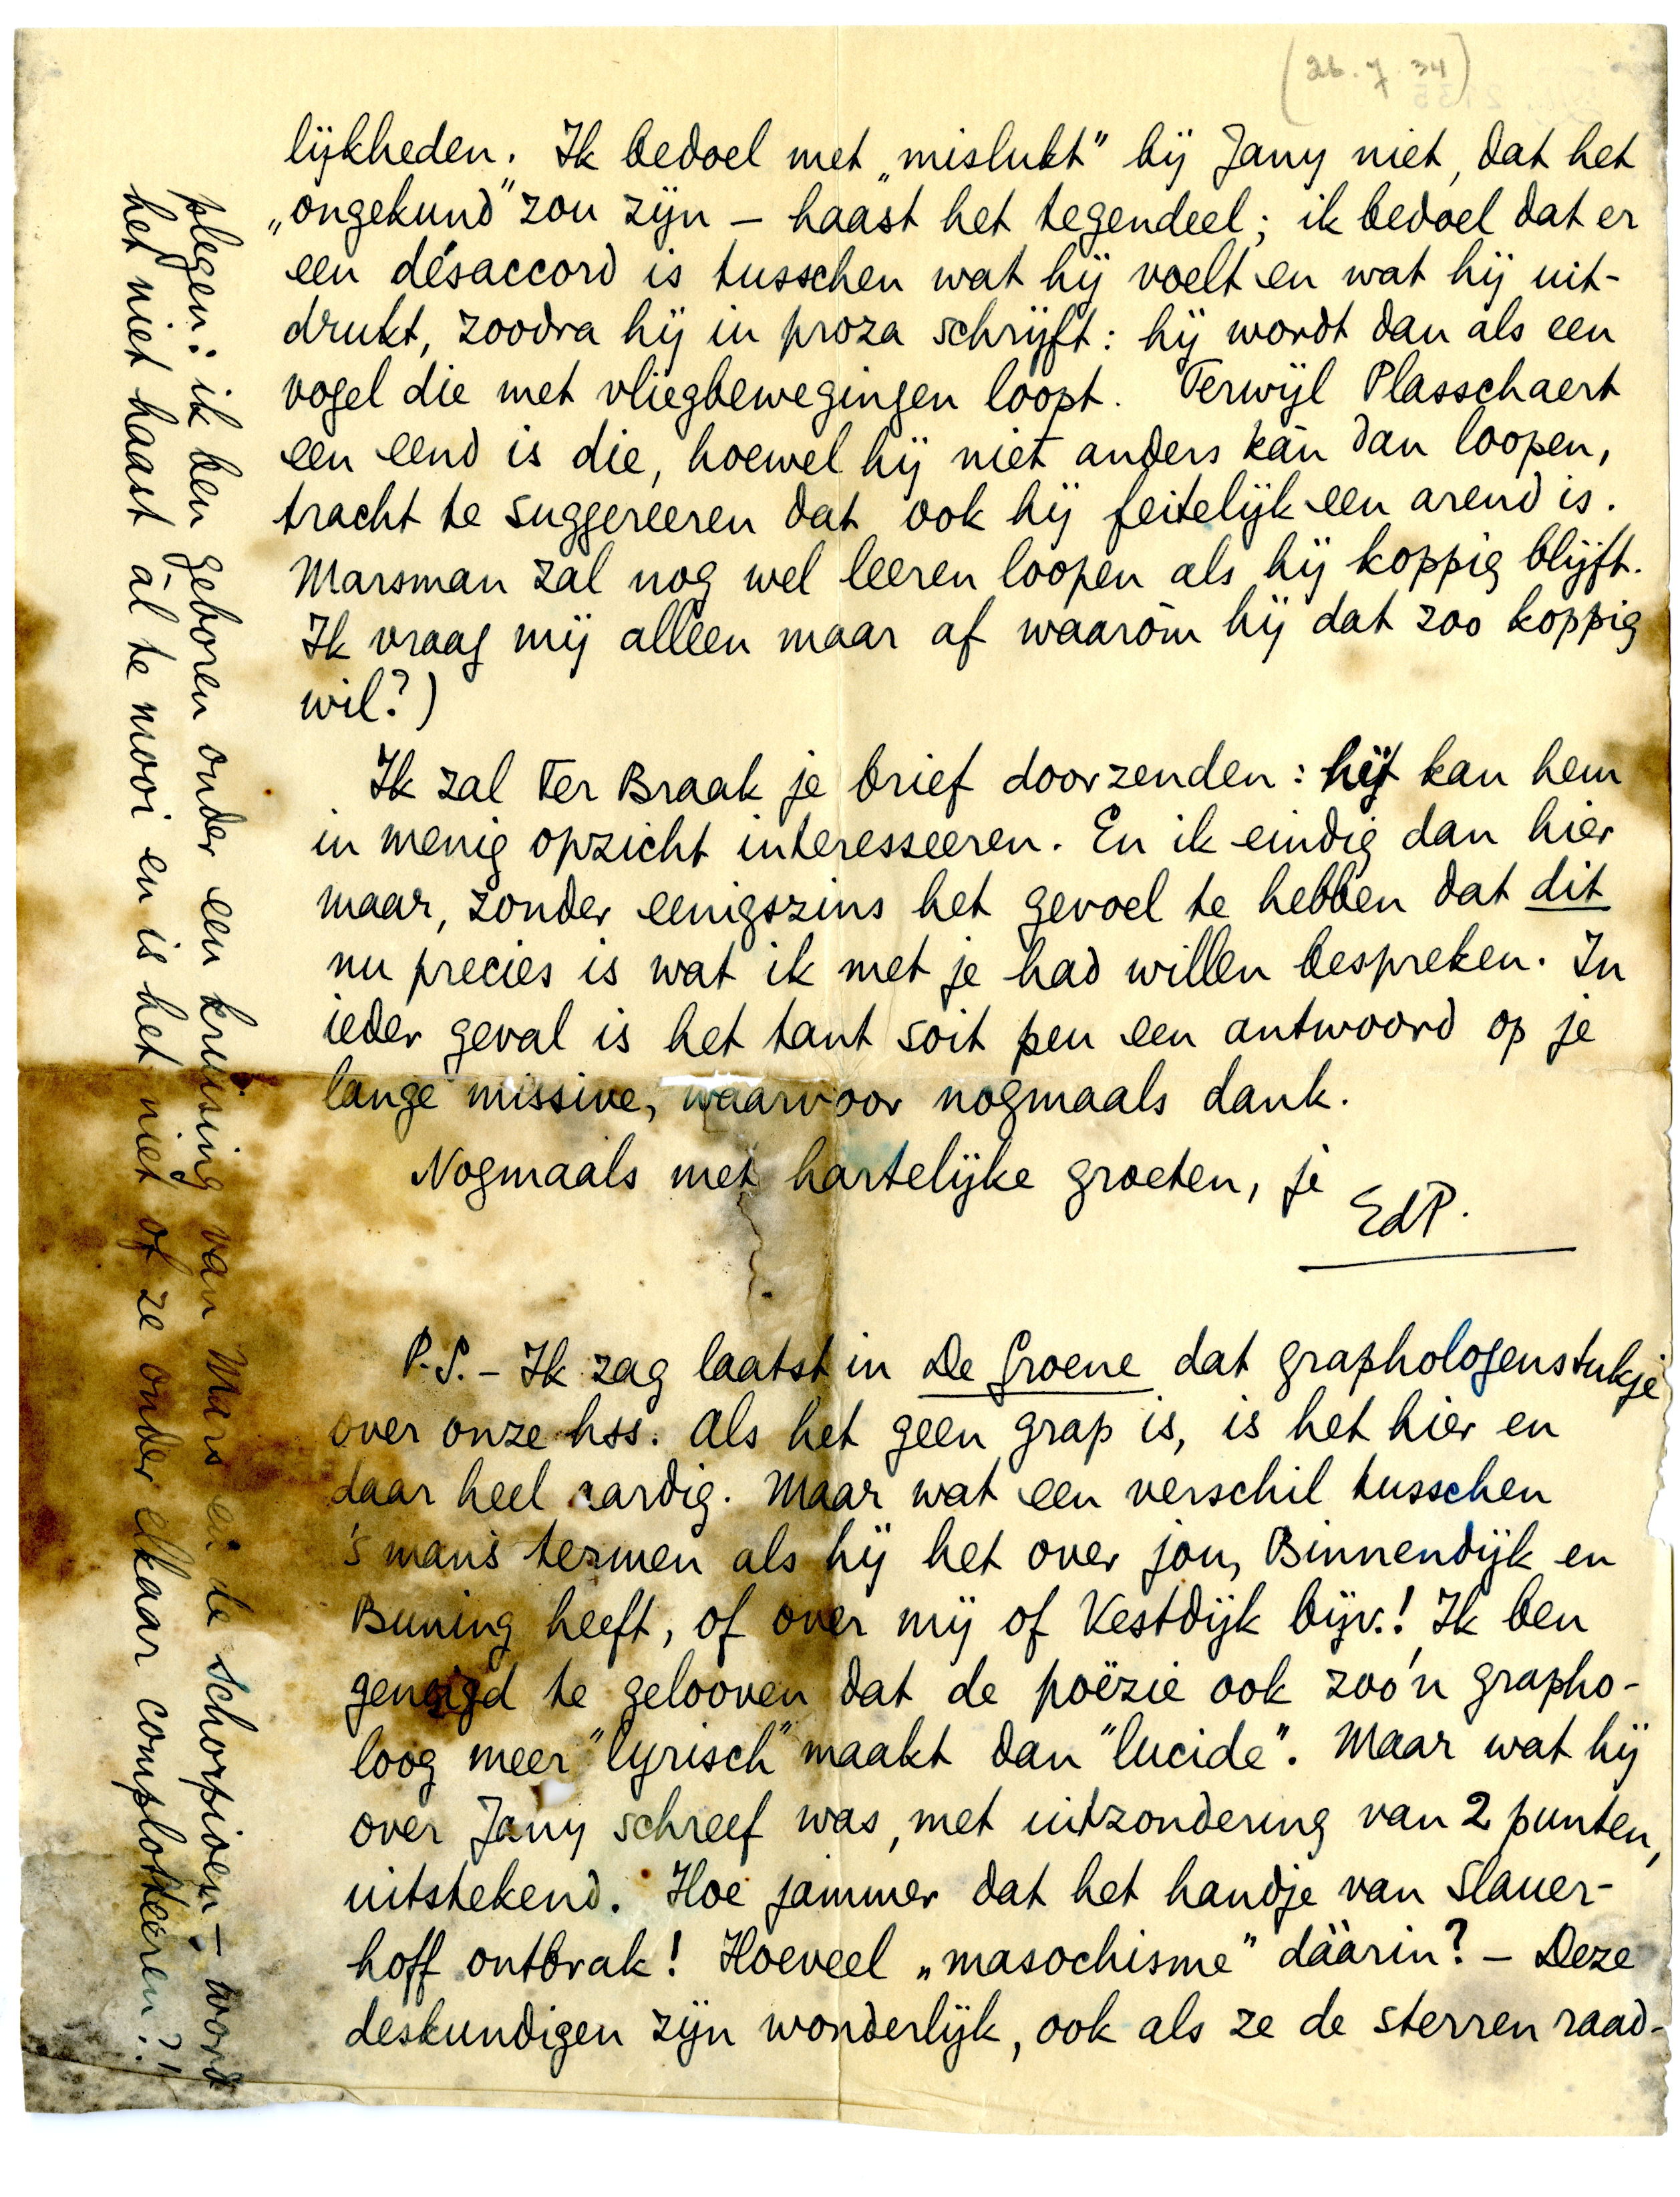 (26.7.34)
lijkheden. Ik bedoel met „mislukt” bij Jany niet, dat het
„ongekund” zou zijn – haast het tegendeel; ik bedoel dat er
een désaccord is tusschen wat hij voelt en wat hij uit-
drukt, zoodra hij in proza schrijft: hij wordt dan als een
vogel die met vliegbewegingen loopt. Terwijl Plasschaert
een eend is die, hoewel hij niet anders kàn dan loopen,
tracht te suggereeren dat ook hij feitelijk een arend is.
Marsman zal nog wel leeren loopen als hij koppig blijft.
Ik vraag mij alleen maar af waaròm hij dat zoo koppig
wil?)
Ik zal Ter Braak je brief doorzenden: hij kan hem
in menig opzicht interesseeren. En ik eindig dan hier
maar, zonder eenigszins het gevoel te hebben dat dit
nu precies is wat ik met je had willen bespreken. In
ieder geval is het tant soit peu een antwoord op je
lange missive, waarvoor nogmaals dank.
Nogmaals met hartelijke groeten, je
EdP.
P.S. – Ik zag laatst in De Groene dat graphologenstukje
over onze hss. Als het geen grap is, is het hier en
daar heel aardig. Maar wat een verschil tusschen
's mans termen als hij het over jou, Binnendijk en
Buning heeft, of over mij of Vestdijk bijv.! Ik ben
geneigd te gelooven dat de poëzie ook zoo'n grapho-
loog meer "lyrisch" maakt dan "lucide". Maar wat hij
over Jany schreef was, met uitzondering van 2 punten,
uitstekend. Hoe jammer dat het handje van Slauer-
hoff ontbrak! Hoeveel „masochisme” dáárin? – Deze
deskundigen zijn wonderlijk, ook als ze de sterren raad-
plegen: ik ben geboren onder een kruising van Mars en de Schorpioen – word
het niet haast ál te mooi en is het niet of ze onder elkaar complotteeren?!